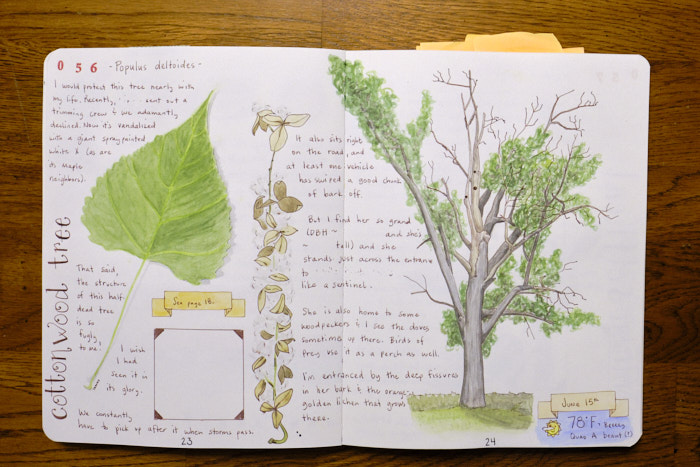 056
- Populus deltoides -
I would protect this tree nearly with
my life. Recently, sent out a
trimming crew & we adamantly
declined. Now it's vandalized
with a giant spraypainted
white & (as are
its maple
neighbors).
cottonwood tree
That said,
the structure
of this half-
dead tree
is so
fugly,
to me.
I wish
I had
seen it in
its glory.
We constantly
have to pick up after it when storms pass.
See page 18.
23
It also sits right
on the road, and
at least one vehicle
has a good chunk
of bark off.
But I find her so grand
(DBH ~ and she's
~ tall) and she
stands just across the entrance
to
like a sentinel.
She is also home to some
woodpeckers & I see the doves
sometimes up there. Birds of
Prey use it as a perch as well.
I'm entranced by the deep fissures
in her bark & the orange-
golden lichen that grows
there.
24
June 15th
78°F.
Quite A beaut (!)